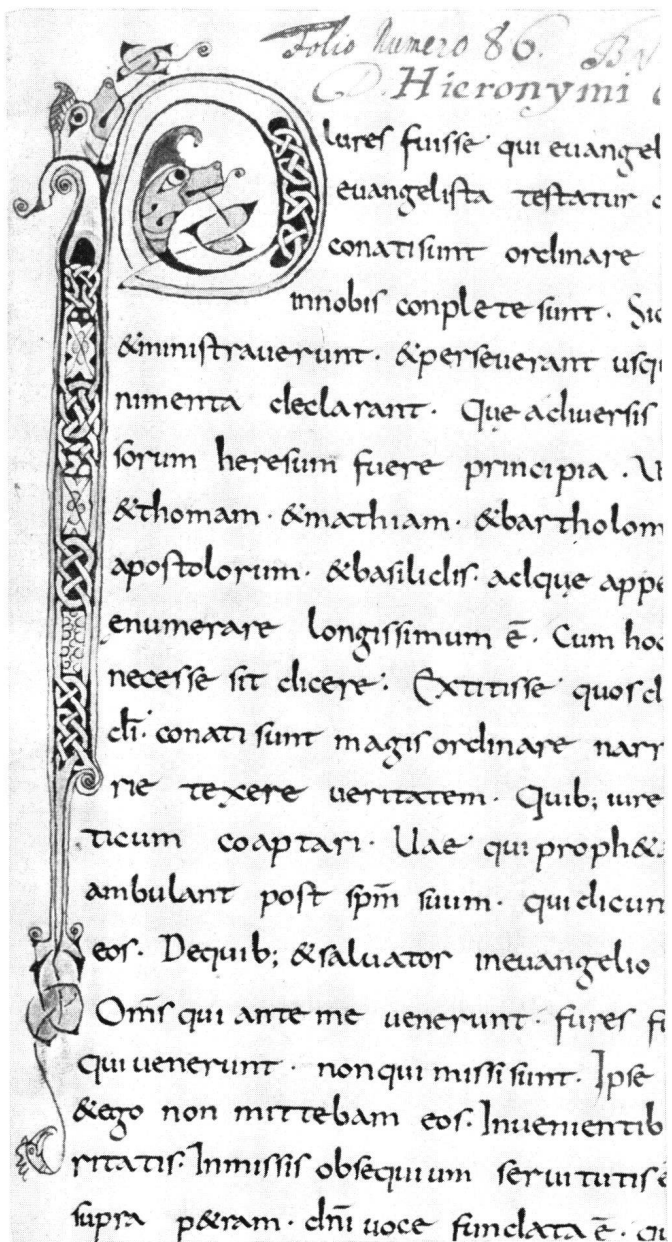 Folio Numero 86.
D. Hieronymi
Plures fuisse qui euangel
euangelista testatur
conatisunt ordinare
innobis conplete sunt. Sic
&ministrauerunt. &perseuerant usqu
nimenta declarant. Que aduersis
sorum heresum fuere principia. U
&thomam. &mathiam. &bartholom
apostolorum. &basilidis. adque appe
enumerare longissimum ē. Cum hoc
necesse sit dicere. Extitisse quosd
dī. conati sunt magis ordinare narr
rie texere ueritatem. Quib; iure
ticum coaptari. Uae qui proph&
ambulant post spm̄ suum. quidicun
eos. Dequib; &saluator ineuangelio
Om̄s qui ante me uenerunt. fures fu
quiuenerunt. nonqui missi sunt. Ipse
&ego non mittebam eos. Inuenientib
ritatis. Inmissis obsequium seruitutis
supra p&ram. dn̄i uoce fundata ē. qu